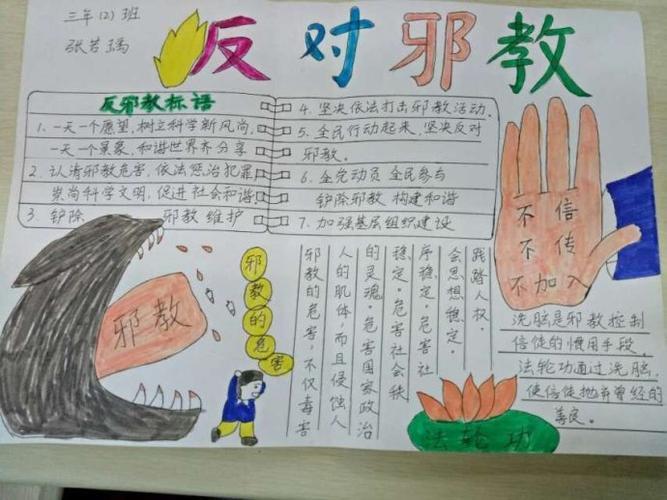 三年(2)班
张若瑀
反对邪教
反邪教标语
1. 一天一个愿望,树立科学新风尚,
一天一个景象,和谐世界齐分享
2. 认清邪教危害,依法惩治犯罪
崇尚科学文明,促进社会和谐
3. 铲除 邪教 维护
4. 坚决依法打击邪教活动.
5. 全民行动起来,坚决反对
邪教。
6. 全党动员 全民参与
铲除邪教 构建和谐
7. 加强基层组织建设
不信
不传
不加入
邪教
邪教的危害
邪教的危害,不仅毒害
人的肌体,而且侵蚀人
的灵魂。危害国家政治
稳定。危害社会秩
序稳定。危害社
会思想稳定。
践踏人权.
洗脑是邪教控制
信徒的惯用手段.
法轮功通过洗脑.
使信徒抛弃曾经的
善良。
法轮功